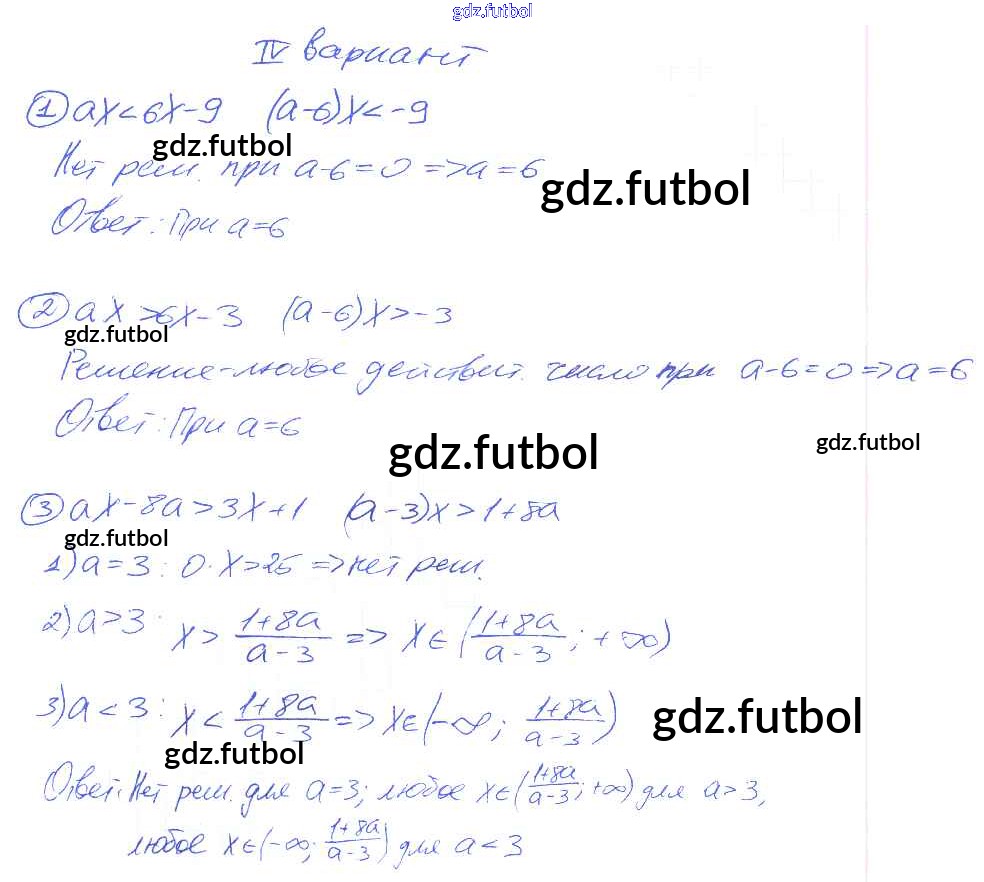 gdz.futbol
IV вариант
① ax<6x-9 (a-6)x<-9
gdz.futbol
Нет реш. при a-6=0 =>a=6
gdz.futbol
Ответ: При a=6
② ax>6x-3 (a-6)x>-3
gdz.futbol
Решение-любое действит. число при a-6=0=>a=6
Ответ: При a=6
gdz.futbol
gdz.futbol
③ ax-8a>3x+1 (a-3)x>1+8a
gdz.futbol
1) a=3: 0·x>25 =>нет реш.
2) a>3: x> (1+8a)/(a-3) => x∈((1+8a)/(a-3); +∞)
3) a<3: x< (1+8a)/(a-3) => x∈(-∞; (1+8a)/(a-3))
gdz.futbol
gdz.futbol
Ответ: Нет реш. для a=3; любое x∈((1+8a)/(a-3); +∞) для a>3,
любое x∈(-∞; (1+8a)/(a-3)) для a<3